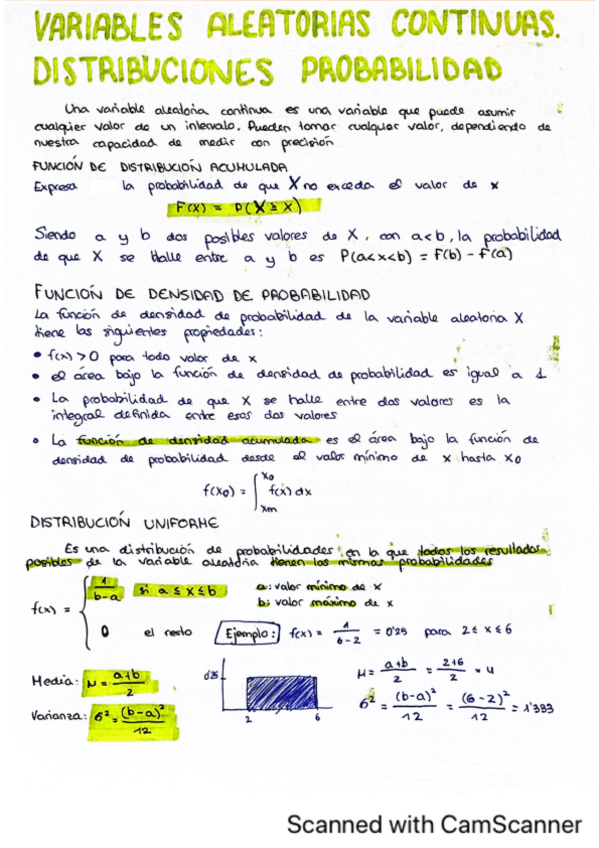 VARIABLES ALEATORIAS CONTINUAS.
DISTRIBUCIONES PROBABILIDAD
Una variable aleatoria continua es una variable que puede asumir
cualquier valor de un intervalo. Pueden tomar cualquier valor, dependiendo de
nuestra capacidad de medir con precisión
FUNCIÓN DE DISTRIBUCIÓN ACUMULADA
Expresa la probabilidad de que X no exceda el valor de x
F(x) = P(X ≤ x)
Siendo a y b dos posibles valores de X, con a<b, la probabilidad
de que X se halle entre a y b es P(a<x<b) = F(b) - F(a)
FUNCIÓN DE DENSIDAD DE PROBABILIDAD
La función de densidad de probabilidad de la variable aleatoria X
tiene las siguientes propiedades:
• f(x) > 0 para todo valor de x
• el área bajo la función de densidad de probabilidad es igual a 1
• La probabilidad de que X se halle entre dos valores es la
integral definida entre esos dos valores
• La función de densidad acumulada es el área bajo la función de
densidad de probabilidad desde el valor mínimo de x hasta x0
f(x0) = ∫ xm x0 f(x) dx
DISTRIBUCIÓN UNIFORME
Es una distribución de probabilidades en la que todos los resultados
posibles de la variable aleatoria tienen las mismas probabilidades
f(x) = { 1/(b-a) si a ≤ x ≤ b
0 el resto
a: valor mínimo de x
b: valor máximo de x
Ejemplo: f(x) = 1/(6-2) = 0'25 para 2 ≤ x ≤ 6
Media: μ = (a+b)/2
Varianza: σ² = (b-a)²/12
0'25
2 6
μ = (a+b)/2 = (2+6)/2 = 4
σ² = (b-a)²/12 = (6-2)²/12 = 1'333
Scanned with CamScanner